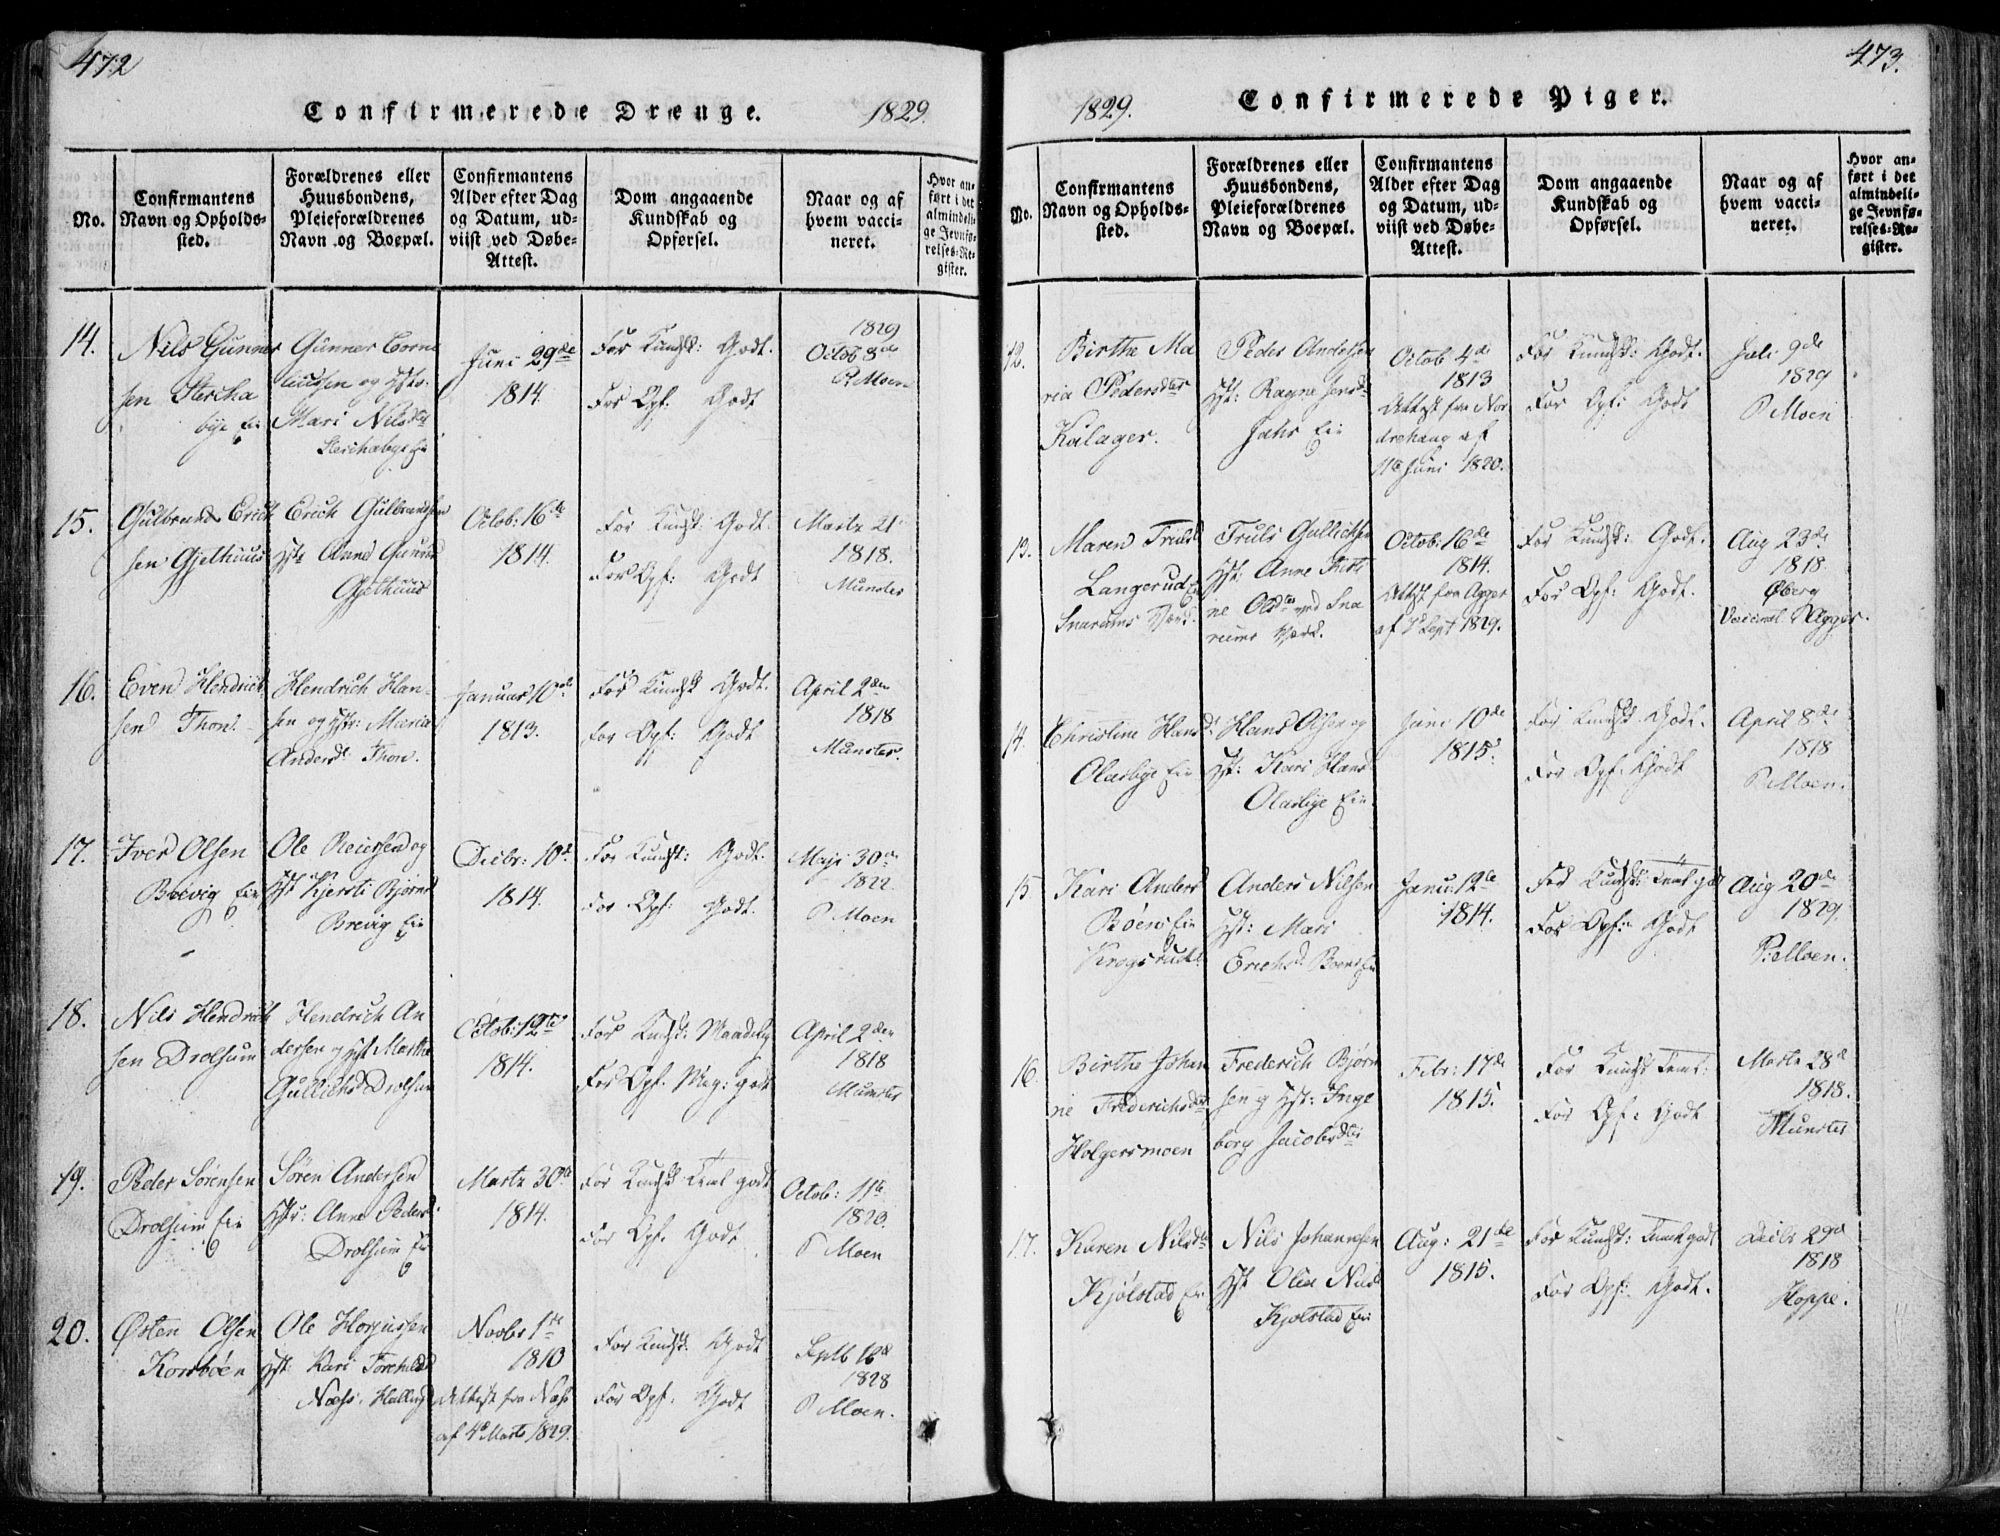 472
Confirmerede Drenge.
1829.
No.
Confirmantens
Navn og Opholds-
sted.
Forældrenes eller
Huusbondens,
Pleieforældrenes
Navn og Boepæl.
Confirmantens
Alder efter Dag
og Datum, ud-
viist ved Døbe-
Attest.
Dom angaaende
Kundskab og
Opførsel.
Naar og af
hvem vacci-
neret.
Hvor an-
ført i det
almindeli-
ge Jevnfø-
relses-Re-
gister.
14.
Nils Gunner
sen Stercha
bye Eie
Gunner Corne
liussen og Hstr:
Mari Nilsdtr
Sterchabye Eie
Juni 29de
1814.
For Kundsk: Godt.
For Opf: Godt
1829
Octob 8de
P Moen
15.
Gulbrand Erich
sen Gjelhuus
Erich Gulbrandsen
Hst: Anne Gunnerd
Gjelhuus
Octob: 16de
1814.
For Kundsk: Godt.
For Opf: Godt
Martz 21
1818.
Munster
16.
Even Hendrich
sen Thon.
Hendrich Han-
sen og Hstr: Maria
Andersd. Thon.
Januar 10de
1813.
For Kundsk Godt.
For Opf: Godt
April 2den
1818
Munster.
17.
Iver Olsen
Brevig Eie
Ole Reiersen og
Hst Kjersti Bjørnsd
Brevig Eie
Decbr: 10de
1814.
For Kundsk: Godt.
For Opf: Godt.
Maji 30de
1822
P Moen
18.
Nils Hendrich
sen Drolsum
Hendrich An
dersen og Hst Marthe
Gullichsd Drolsum
Octob: 12te
1814.
For Kundsk: Maadelig
For Opf. Meg: godt
April 2den
1818
Munster
19.
Peder Sørensen
Drolsum Eie
Søren Andersen
Hstr: Anne Peders
Drolsum Eie
Martz 30de
1814.
For Kundsk Teml godt
For Opf. Godt
Octob: 11te
1820.
P Moen
20.
Østen Olsen
Korsbøen
Ole Hansen
Hst: Kari Torchildsd
Næss. Halling
Novbr 1ste
1810
Attest fra Næss
af 4de Marts 1829.
For Kundsk: Godt
For Opf. Godt
Septb 16de
1828
P Moen.
473.
1829.
Confirmerede Piger.
No.
Confirmantens
Navn og Opholds-
sted.
Forældrenes eller
Huusbondens,
Pleieforældrenes
Navn og Boepæl.
Confirmantens
Alder efter Dag
og Datum, ud-
viist ved Døbe-
Attest.
Dom angaaende
Kundskab og
Opførsel.
Naar og af
hvem vacci-
neret.
Hvor an-
ført i det
almindeli-
ge Jevnfø-
relses-Re-
gister.
12.
Birthe Ma
ria Pedersdtr
Kalager.
Peder Andersen
Hst: Ragne Jensd
Jahr Eie
Octob 4de
1813
Attest fra Nor
drehaug af
11te Juni 1820.
For Kundsk: Godt.
For Opf: Godt
Juli 9de
1829
P Moen
13.
Maren Trulsd
Langerud Eie
Snarums Værk.
Truls Gullichsen
Hst: Anne Kirsti
ne Olsdtr ved Sna
rums Værk.
Octob: 16de
1814.
Attest fra Agger
af 7de Sept 1829.
For Kundsk: Godt.
For Opf: Godt.
Aug 23de
1818
Øberg
Agger.
14.
Christine Hansd
Olasbye Eie
Hans Olsen og
Hst: Kari Hansd
Olasbye Eie.
Juni 10de
1815.
For Kundsk: Godt.
For Opf: Godt
April 8de
1818
P Moen.
15
Kari Anders
Bøens Eie
Krogsrud.
Anders Nilsen
Hst: Mari
Erichsd: Boens Eie
Janu: 12te
1814.
For Kundsk: Teml godt
For Opf: Godt
Aug 20de
1829.
P Moen.
16.
Birthe Johan
ne Frederichsdtr
Holgersmoen
Frederich Bjørn
sen og Hst: Inge
borg Jacobsdtr
Febr: 17de
1815.
For Kundsk Teml:
For Opf: Godt
Martz 28de
1818.
Munster
17.
Karen Nilsdtr
Kjølstad Eie
Nils Johannesen
Hst Olea Nilsd
Kjølstad Eie
Aug: 21de
1815.
For Kundsk: Teml godt
For Opf: Godt.
Decbr 29de
1818
Hoppe.